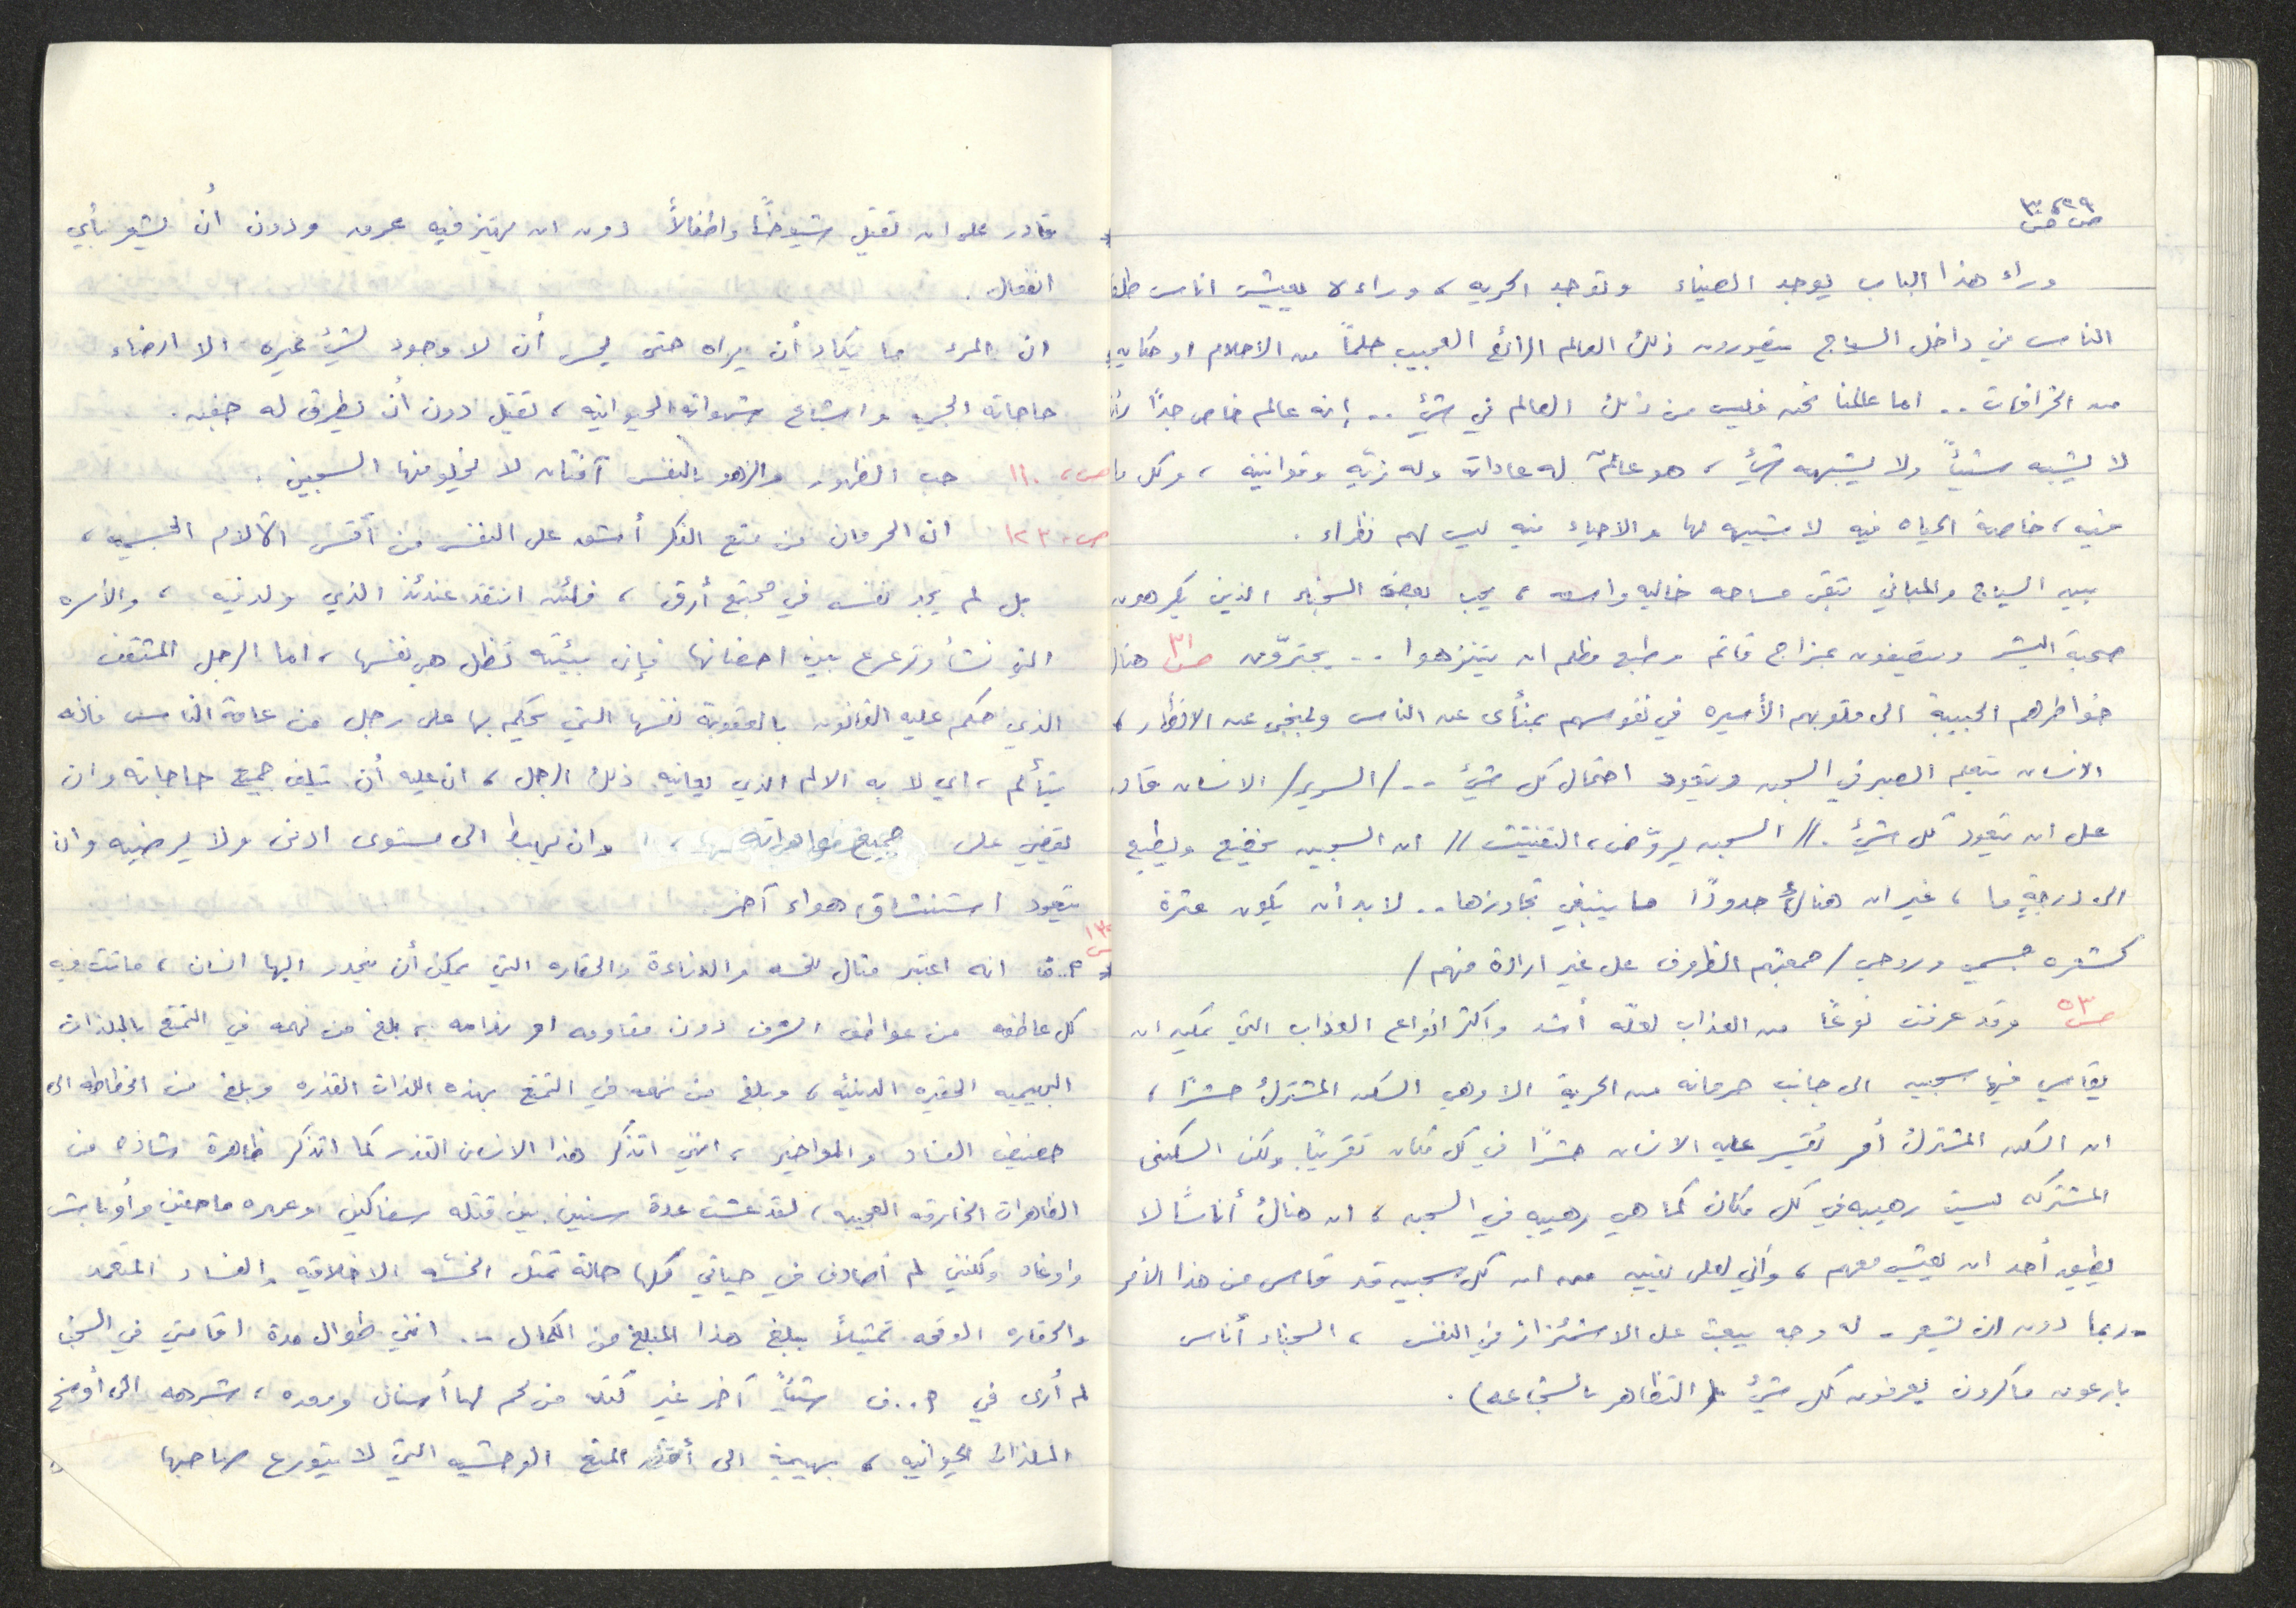 ص ٢٩، ص ٣٠
وراء هذا الباب يوجد الضياء وتوجد الحريه، وراءه يعيش اناس
الناس في داخل السياج يتصورون ذلك العالم الرائع العجيب حلماً من الأحلام او حكايه
من الخرافات .. اما عالمنا نحن فليس من ذلك العالم في شيء .. إنه عالم خاص جداً
لا يشبه شيئاً ولا يشبهه شيء، هو عالمٌ له عاداته وله زيّه وقوانينه، وكل ما
فيه، خاصة الحياه فيه لا شبيه لها والاحياء فيه ليس لهم نظراء.
بين السياج والمباني تبقى مساحه خاليه واسعه، يحب بعض السجناء الذين يكرهون
صحبة البشر ويتصفون بمزاج قاتم وطبع مظلم ان يتنزهوا .. يجترّون ص ٣١ هناك
خواطرهم الحبيبة الى قلوبهم الأسيره في نفوسهم بمنأى عن الناس وبمنجى عن الانظار،
الانسان يتعلم الصبر في السجن ويتعود احتمال كل شيء .. /السرير/ الانسان قادر
على ان يتعود كل شيء. // السجن يروّض، التفتيت // ان السجين يخضع ويطيع
الى درجةٍ ما، غير ان هنالك حدودًا ما ينبغي تجاوزها .. لا بد أن يكون عترة
كشعره جسمي وروحي /جمعتهم الظروف على غير ارادة منهم/
ص ٥٣ وقد عرفت نوعًا من العذاب لعلّه أشد واكثر انواع العذاب التي يمكن ان
يقاسي فيها سجين الى جانب حرمانه من الحرية الا وهي السكن المشترك حشرًا،
ان السكن المشترك أمر يُقسر عليه الانسان حشرًا في كل مكان تقريبًا ولكن السكنى
المشتركه ليست رهيبه في كل مكان كما هي رهيبه في السجن، ان هنالك أناسًا لا
يطيق أحد ان يعيش معهم، وأني لعلى يقين من ان كل سجين قد قاسى من هذا الأمر
- ربما دون ان يشعر - له وجه يبعث على الاشمئزاز في النفس، السجناء أناس
بارعون ماكرون يعرفون كل شيء (التظاهر بالشجاعه).
قادر على ان تقتل شيوخًا واطفالاً دون ان يهتز فيه عرق ودون أن يشعر بأي
انفعال.
ان المرء ما يكاد أن يراه حتى يحس أن لا وجود لشيء غيره الا ارضاء
حاجاته الجسميه واشباع شهواته الحيوانيه، تقتل دون أن يطرف له جفن.
ص، ١١٠ حب الظهور والزهو بالنفس آفتان لا يخلو منها السجين.
ص، ١٢٣ ان الحرمان من متع الفكر أشق على النفس من أقسى الآلام الجسميه،
بل لم يجد نفسه في مجتمع أرقى، فلئن افتقد عندئذ الذي ولد فيه، والأسره
التي نشأ وترعرع بين احضانها فإن بيئته تظل هي نفسها، اما الرجل المثقف
الذي حكم عليه القانون بالعقوبة نفسها التي يحكم بها على رجل من عامة الناس فانه
يتألم، اي لا به الالم الذي يعانيه ذلك الرجل، ان عليه أن يتلف جميع حاجاته وان
يقضي على جميع وان يهبط الى مستوى ادنى ولا يرضيه وان
يتعود استنشاق هواء آخر
ص ١٣٠ * ..ف انه اعتبر مثال للخسه والدناءة والحقاره التي يمكن أن ينحدر اليها انسان، ماتت فيه
كل عاطفه من عواطف الشرف دون مقاومه او ندامه، بلغ من نهمه في التمتع بالملذات
البهيميه الحقيره الدنيئه، وبلغ من نهمه في التمتع بهذه اللذات القذره وبلغ من انحطاطه الى
حضيض الفساد والمواخير، انني اتذكر هذا الانسان القذر كما اتذكر ظاهرة شاذه من
الظاهرات الخارقه العجيبه، لقد عشت عدة سنين بين قتله سفاكين وعهره ماجنين وأوباش
واوغاد ولكنني لم أصادف في حياتي كلها حالة تمثل الخسه الاخلاقيه والفساد المتعمد
والحقاره الوقحه تمثيلاً يبلغ هذا المبلغ من الكمال .. انني طوال مدة اقامتي في السجن
لم أرى في ..ف شيئاً آخر غير كتله من لحم لها أسنان ومعده، شرهه الى أوسخ
الملذات الحيوانيه، بهيمية الى أقذر المتع الوحشيه التي لا يتورع صاحبها